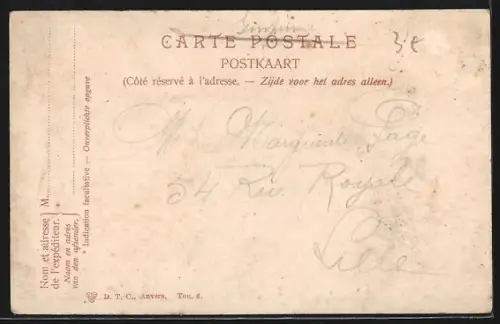 CARTE POSTALE
3€
POSTKAART
(Côté réservé à l'adresse. — Zijde voor het adres alleen.)
54 Rue Royale
Lille
Nom et adresse de l'expéditeur. } M
Naam en adres van den afzender. } *
* Indication facultative — Onverplichte opgave
D. T. C., Anvers. Tou. 6.